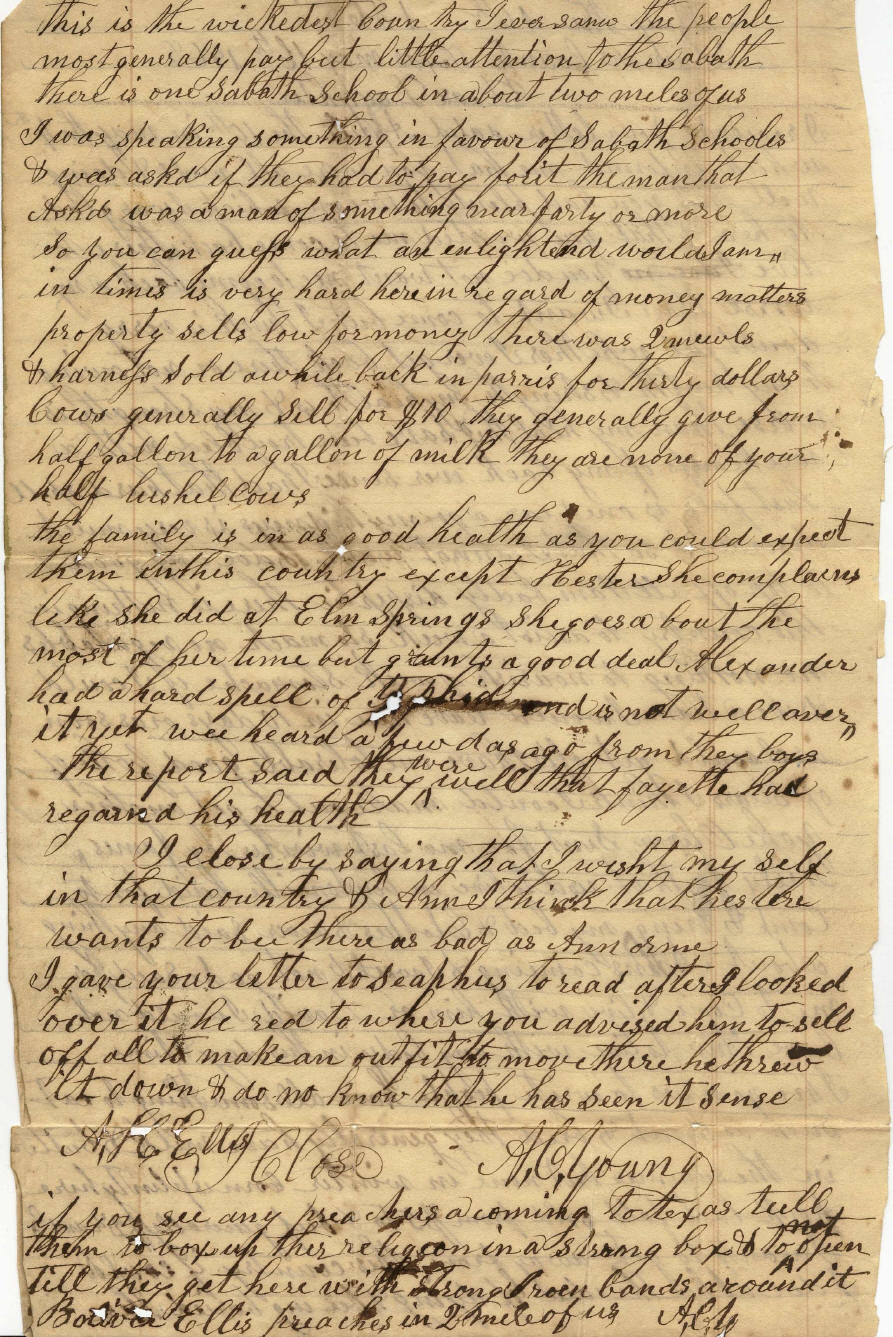 this is the wickedest Country I ever saw the people
most generally pay but little attention to the sabath
there is one Sabath School in about two meles of us
I was speaking something in favour of Sabath Schooles
& was askd if they had to pay for it the man that
Askd was a man of something near farty or more
So you can guess what an enlightend world I am
in times is very hard here in regard of money matters
property sells low for money there was 2 mewls
& harness Sold awhile back in parris for thirty dollars
Cows generally Sell for $10 they generally give from
half gallon to a gallon of milk they are none of your
half bushel Cows
the family is in as good health as you could expect
them in this country except Hester She complains
like she did at Elm Springs She goes a bout the
most of her time but grunts a good deal Alexander
had a hard spell of and is not well over
it yet wee heard a few das ago from they boys
the report said they were well that fayette had
regarnd his health
I close by saying that I wisht my self
in that country & Ann I think that hestere
wants to bee there as bad as Ann or me
I gave your letter to Seaphus to read after I looked
over it he red to where you advised him to sell
off all to make an outfit to move there he threw
it down & do no know that he has seen it sense
A, H, Ellis I Close - A, C, Young
if you see any preachers a coming to texas tell
them to box up ther religeon in a strong box & to not open
till they get here with strong bands around it
Ellis preaches in 2 mile of us A C Y